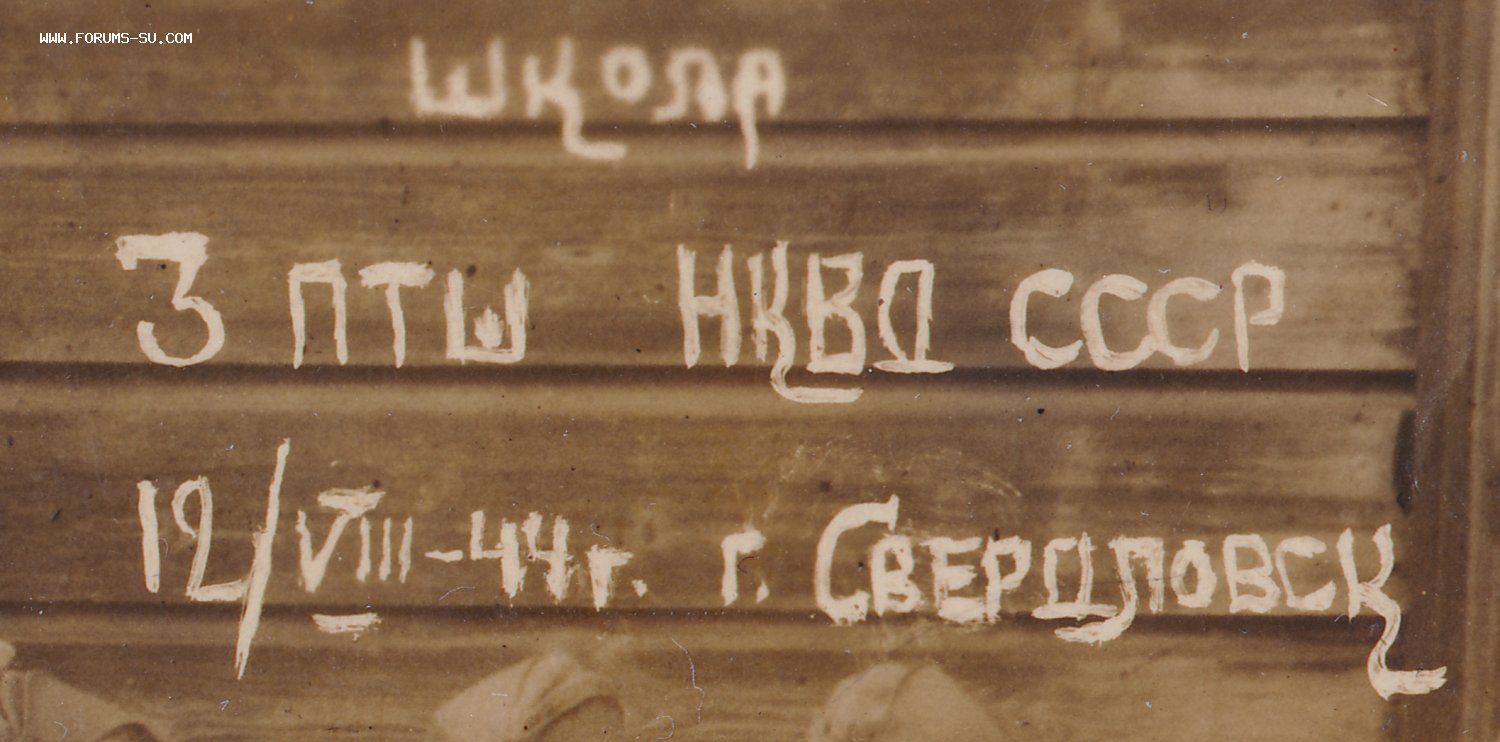 WWW.FORUMS-SU.COM
ШКОЛА
3 ПТШ НКВД СССР
12/VIII-44г. г. СВЕРДЛОВСК